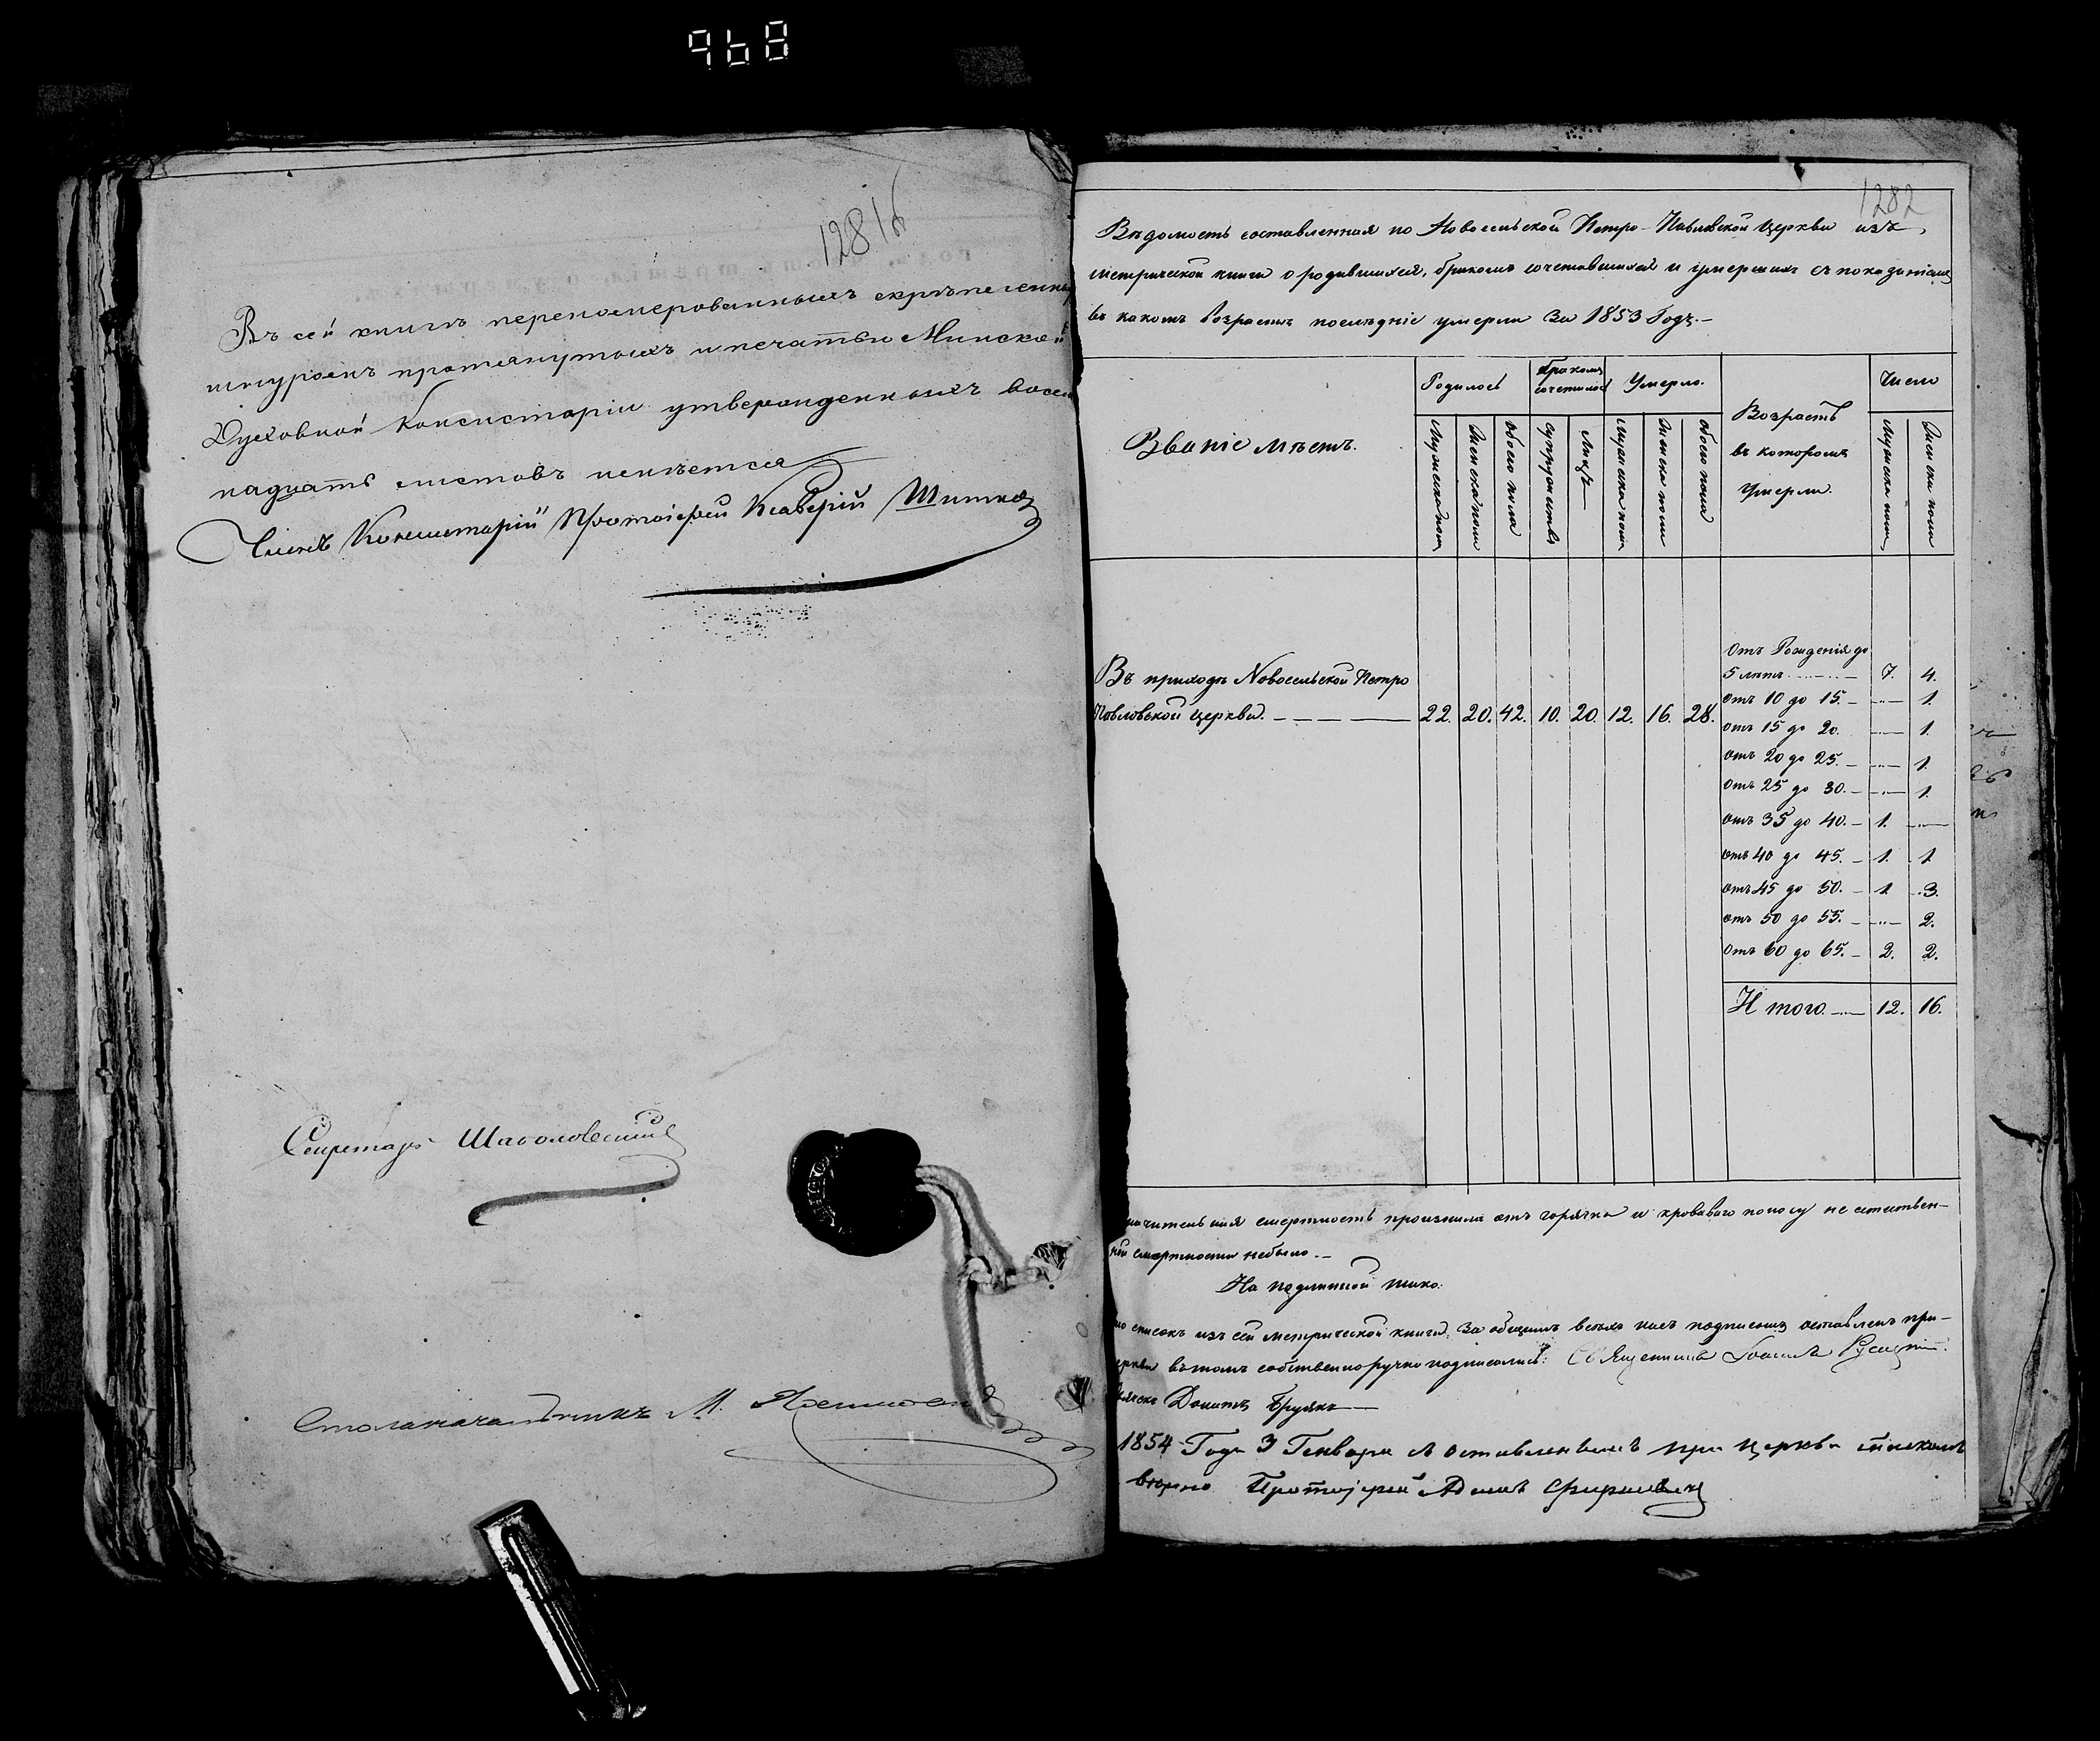 968
1281б
Въ сей книгѣ переномерованныхъ скрѣпленны
шнуромъ протянутыхъ и печатью Минской
Духовной Консисторіи утвержденныхъ восем
надцать листовъ имѣется
Членъ Консисторіи Протоіерей Ксаверій
Секретарь
Столоначальникъ М.
1282
Вѣдомость составленная по Новосельской Петро-Павловской Церкви изъ
метрической книги о родившихся, бракомъ сочетавшихся и умершихъ съ показаніемъ
въ какомъ возрастѣ послѣдніе умерли за 1853 Годъ.
Званіе мѣстъ.
Родилось
Бракомъ сочеталось
Умерло.
Возрастъ
въ которомъ
Умерли.
Число
Мужеска пола
Женска пола
Обоего пола
Супружествъ
Лицъ
Мужеска пола
Женска пола
Обоего пола
Мужеска пола
Женска пола
Въ приходѣ Новосельской Петро
Павловской церкви. 22. 20. 42. 10. 20. 12. 16. 28.
Отъ Рожденія до
5 лѣтъ 7. 4.
Отъ 10 до 15. — 1.
Отъ 15 до 20. — 1.
Отъ 20 до 25. — 1.
Отъ 25 до 30. — 1.
Отъ 35 до 40. 1. —
Отъ 40 до 45. 1. 1.
Отъ 45 до 50. 1. 3.
Отъ 50 до 55. — 2.
Отъ 60 до 65. 2. 2.
Итого. 12. 16.
смертность произошла отъ горячки и кроваваго поносу не естествен-
ной смертности небыло.
На подлинной тако:
список изъ сей метрической книги за общимъ всѣхъ насъ подписомъ оставленъ при
церкви въ томъ собственноручно подписались: Священникъ
Донатъ
1854 Года 3 Генваря съ оставленнымъ при Церкви спискомъ
вѣрно Протоіерей Адамъ